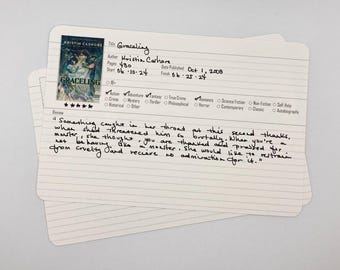 KRISTIN CASHORE
GRACELING
Title: Graceling
Author: Kristin Cashore
Pages: 480 Date Published: Oct 1, 2008
Start: 06-10-24 Finish: 06-25-24
Action Adventure Fantasy Romance Science Fiction Non-Fiction Self-Help
Crime Mystery Thriller Horror Contemporary Classic Autobiography
Historical Other Philosophical
Review
"Something caught in her throat at this second thanks,
when she'd threatened him so brutally. When you're a
monster, she thought, you are thanked and praised for
not behaving like a monster. She would like to restrain
from cruelty and receive no admiration for it."